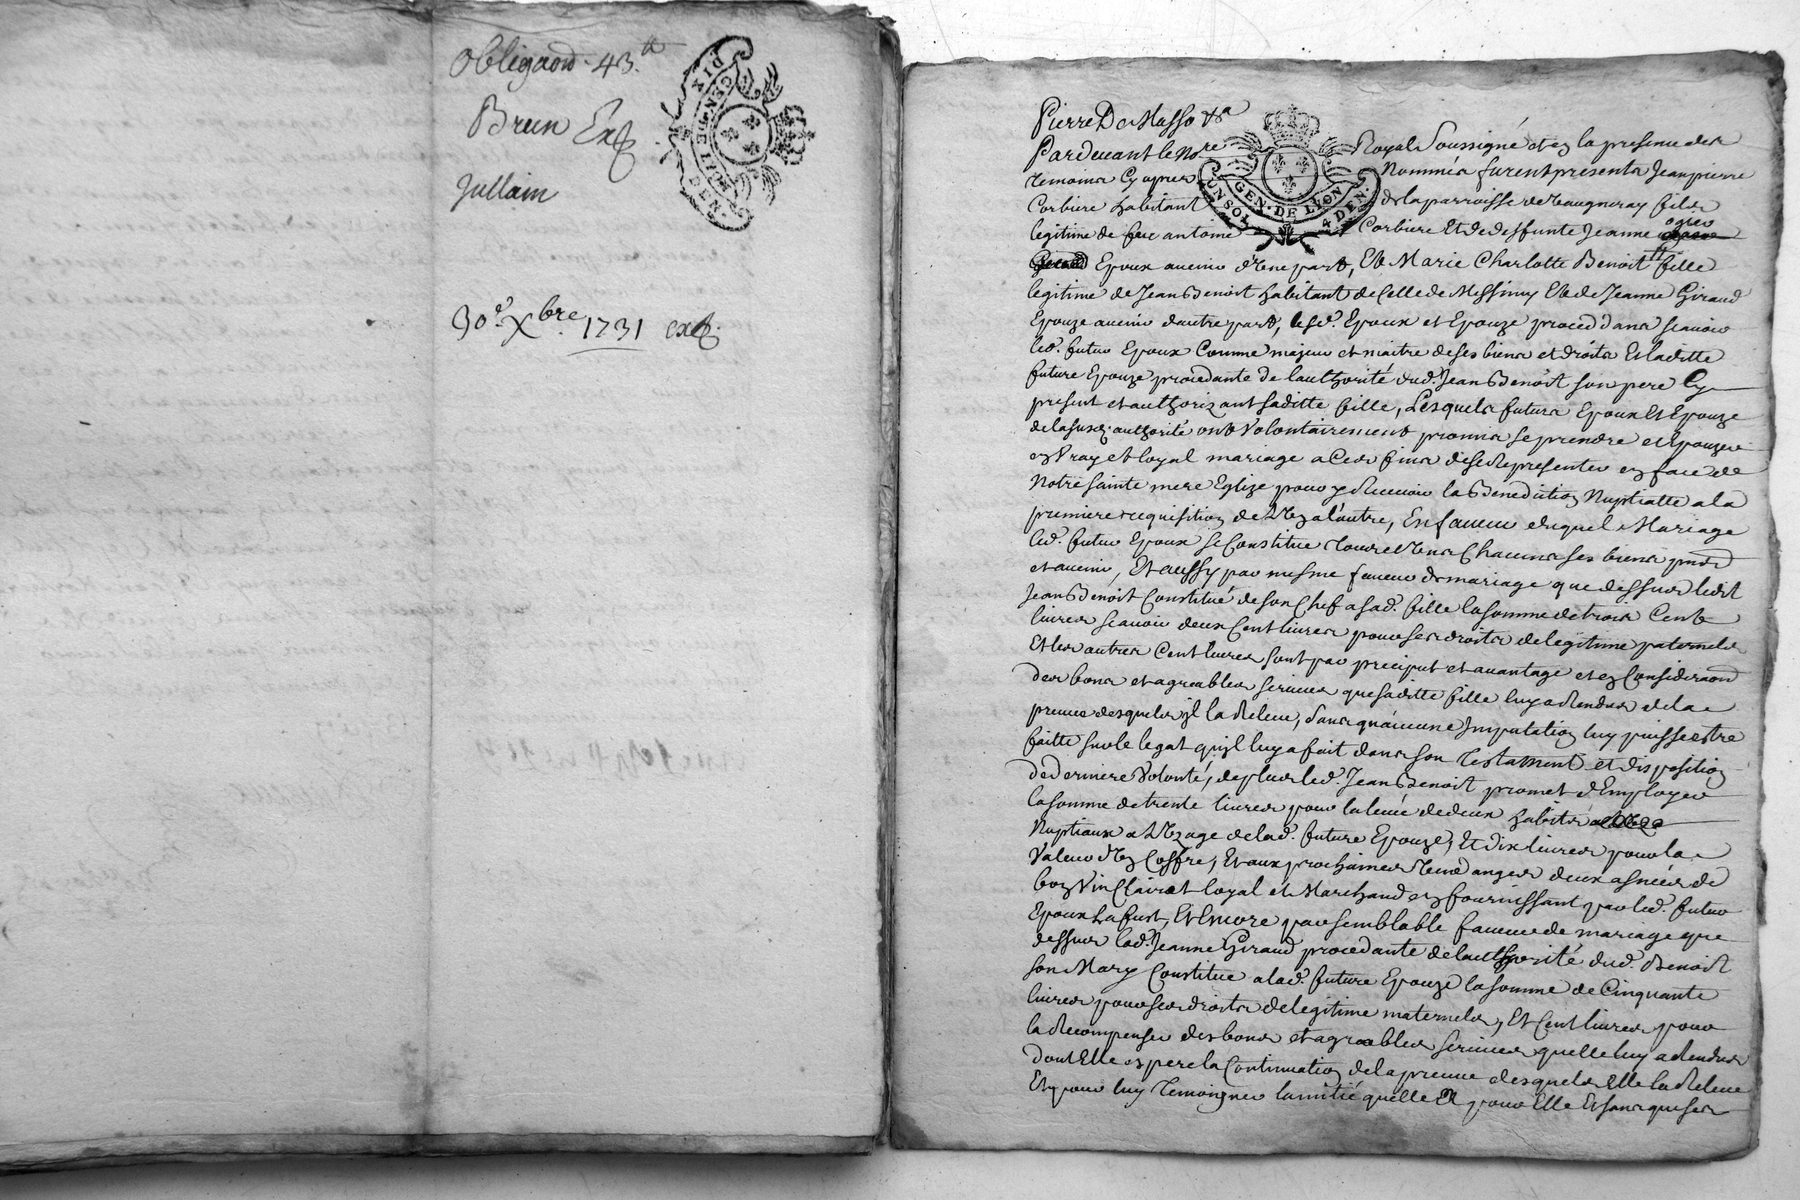 Obligaōn 43.tt
Brun Exp.
Jullain
30.e Xbre. 1731 exp.
DIX
GEN. DE
MILIE
DEN.
Pierre De Masso
Pardevant le Nore Royal Soussigné et en la presence des
temoins cy apres Nommés furent presents Jean pierre
Corbiere habitant de la parroisse de Vaugneray fils
legitime de feu antoine Corbiere Et de deffunte Jeanne ogier
UN SOL
GEN. DE LION
4 DEN.
Epoux avenir d'Une part, Et Marie Charlotte Benoit fille
legitime de Jean Benoit habitant de Celle de Messimy Et de Jeanne Giraud
Epouze avenir d'autre part, lesd. Epoux et Epouze proced'dans scavoir
led. futur Epoux Comme majeur et maitre de ses biens et droits Et laditte
future Epouze procedante de l'authorité dud. Jean Benoit son pere Cy
present et authorizant saditte fille, Lesquels futurs Epoux Et Epouze
de la susd. authorité ont Volontairement promis se prendre et Epouzer
en Vray et loyal mariage a Ces fins de se Representer en face de
Notre sainte mere Eglize pour y Recevoir la Benediction Nuptialle a la
premiere requisition de L'Un a l'autre, En faveur duquel Mariage
led. futur Epoux se Constitue tous et Uns Chacuns ses biens pnts
et avenir, Et aussy par mesme faveur de mariage que dessus ledit
Jean Benoit Constitue de son Chef a sad. fille la somme de trois Cent
livres scavoir deux Cent livres pour ses droits de legitime paternels
Et les autres Cent livres sont par preciput et avantage et en Consideraōn
des bons et agreables services que saditte fille luy a Rendus de la
preuve desquels Il la Releve, sans qu'aucune Imputation luy puisse estre
faitte sur le legat qu'il luy a fait dans son Testament et disposition
de derniere Volonté, de plus led. Jean Benoit promet d'Employer
la somme de trente livres pour la levée de deux habits
Nuptiaux a L'Uzage de lad. future Epouze, Et dix livres pour la
Valeur d'Un Coffre, Et aux prochaines Vendanges deux asnées de
bon Vin Clairet loyal et Marchand en fournissant par led. futur
Epoux la fust, Et Encore par semblable faveur de mariage que
dessus lad. Jeanne Giraud procedante de l'authorité dud. Benoit
son Mary Constitue a lad. future Epouze la somme de Cinquante
livres pour ses droits de legitime maternels, Et Cent livres pour
la Recompenser des bons et agreables services quelle luy a Rendus
dont Elle espere la Continuation de la preuve desquels Elle la Releve
Et pour luy Temoigner lamitié quelle a pour Elle Et sans que ses